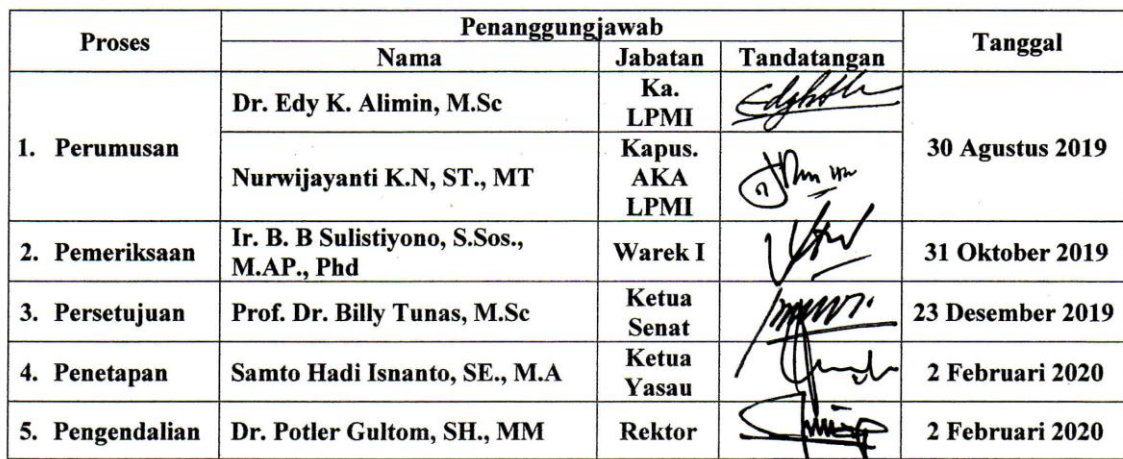 Proses Penanggungjawab Tanggal
Nama Jabatan Tandatangan
1. Perumusan Dr. Edy K. Alimin, M.Sc Ka.
LPMI 30 Agustus 2019
Nurwijayanti K.N, ST., MT Kapus.
AKA
LPMI
2. Pemeriksaan Ir. B. B Sulistiyono, S.Sos.,
M.AP., Phd Warek I 31 Oktober 2019
3. Persetujuan Prof. Dr. Billy Tunas, M.Sc Ketua
Senat 23 Desember 2019
4. Penetapan Samto Hadi Isnanto, SE., M.A Ketua
Yasau 2 Februari 2020
5. Pengendalian Dr. Potler Gultom, SH., MM Rektor 2 Februari 2020